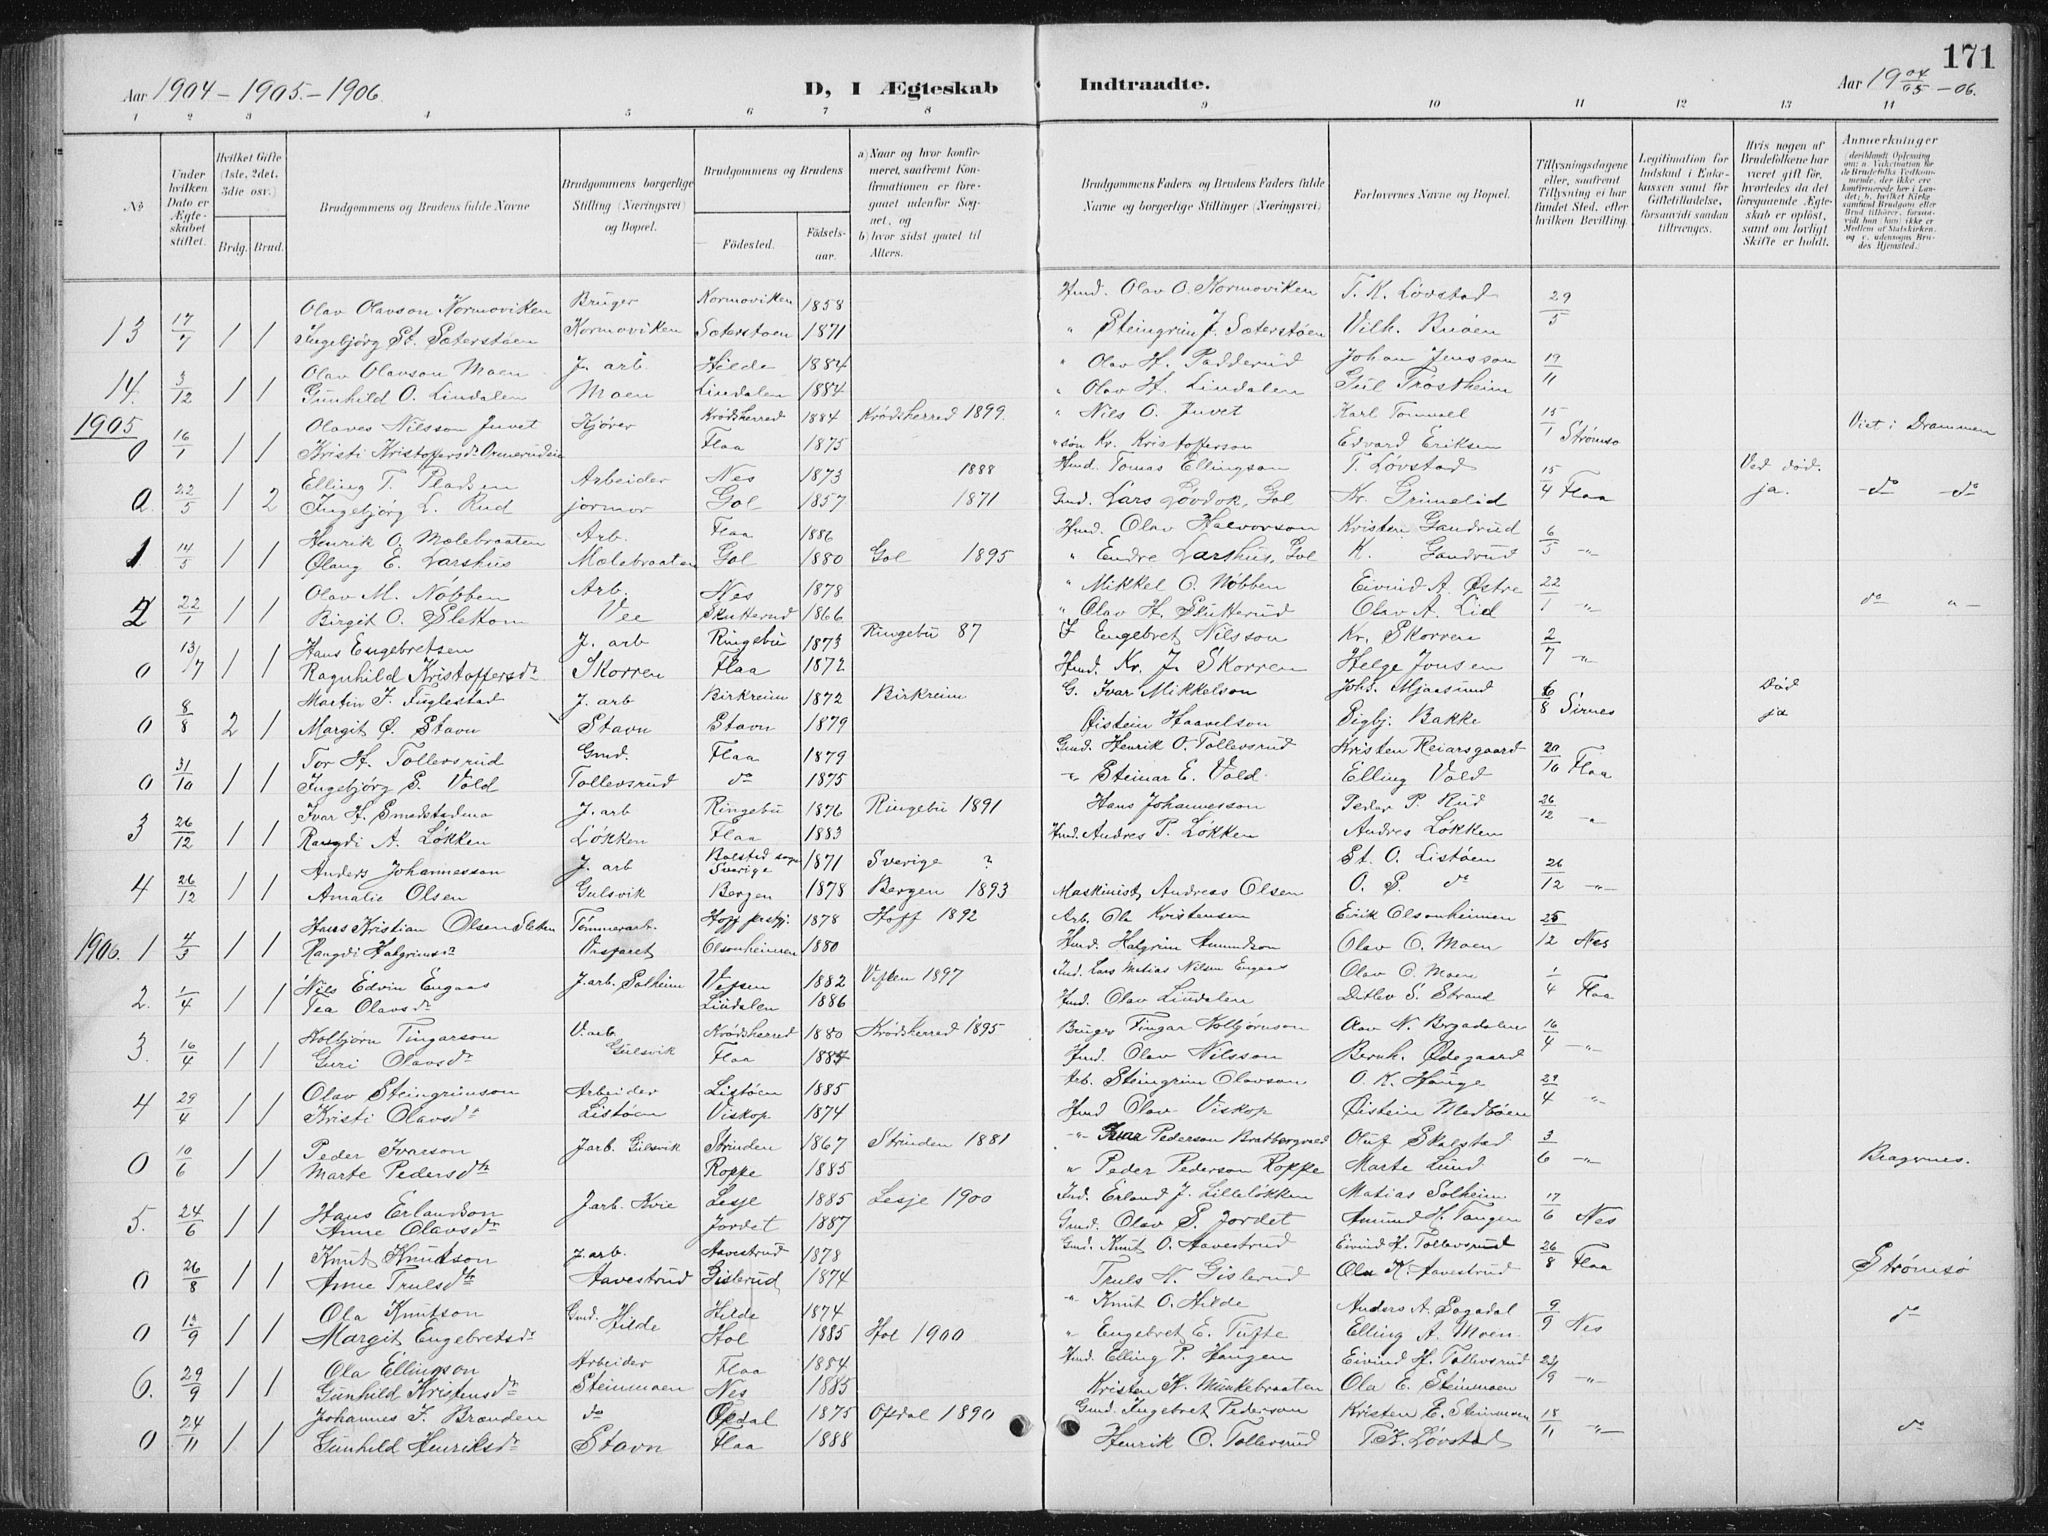 171
Aar 1904 - 1905. - 1906.
D, I Ægteskab Indtraadte.
Aar 19 04/05 - 06.
1 2 3 4 5 6 7 8 9 10 11 12 13 14
No
Under hvilken Dato er Ægteskabet stiftet.
Hvilket Gifte (1ste, 2det, 3die osv.)
Brdg. Brud.
Brudgommens og Brudens fulde Navne
Brudgommens borgerlige Stilling (Næringsvei) og Bopæl.
Brudgommens og Brudens
Fødested.
Fødselsaar.
a) Naar og hvor konfirmeret, saafremt Konfirmationen er foregaaet udenfor Sognet, og
b) hvor sidst gaaet til Alters.
Brudgommens Faders og Brudens Faders fulde Navne og borgerlige Stillinger (Næringsvei)
Forlovernes Navne og Bopæl.
Tillysningsdagene eller, saafremt Tillysning ei har fundet Sted, efter hvilken Bevilling.
Legitimation for Indskud i Enkekassen samt for Giftetilladelse, forsaavidt saadan tiltrænges.
Hvis nogen af Brudefolkene har været gift før, hvorledes da det foregaaende Ægteskab er opløst, samt om lovligt Skifte er holdt.
Anmerkninger
Olav Olavson Normoviken Bruger Normoviken 1858 Hmd. Olav O. Normoviken T. K. Løvstad 29/5
13 17/7 1 1 Ingebjørg St. Sæterstøen Normoviken Sæterstøen 1871 " Steingrim J. Sæterstøen Vilh. Bruøen
Olav Olavson Moen J. arb. Hilde 1884 " Olav H. Padderud Johan Jensson 19/11
14. 3/12 1 1 Gunhild O. Lindalen Moen Lindalen 1884 " Olav H. Lindalen Gul Trøstheim
1905 Olaves Nilsson Juvet Kjører Krødsherred 1884 Krødsherred 1899. " Nils O. Juvet Karl Tomvall 15/1 Strømsø Viet i Drammen
0 16/1 1 1 Kristi Kristoffersdr Ormeruden Flaa 1875 Kr. Kristofferson Edvard Eriksen
Elling T. Pladsen Arbeider Nes 1873 1888 Hmd. Tomas Ellingson T. Løvstad 15/4 Flaa Ved død.
0 22/5 1 2 Ingebjørg L. Rud jormor Gol 1857 1871 Gmd. Lars Løvdok, Gol Kr. Grimelid ja. do do
Henrik O. Mælebraaten Arb. Flaa 1886 Hmd. Olav Halvorson Kristen Gandrud 6/5
1 14/5 1 1 Ølaug E. Larshus Mælebraaten Gol 1880 Gol 1895 " Endre Larshus, Gol K. Gandrud "
Olav M. Nøbben Arb. Nes 1878 " Mikkel O. Nøbben Eivind A. Østre 22/1
2 22/1 1 1 Birgit O. Slettom Vee Skutterud 1866 " Olav H. Skutterud Olav A. Lid " do "
Hans Engebretsen J. arb Ringebu 1873 Ringebu 87 F Engebret Nilsson Kr. Skorren 2/7
0 13/7 1 1 Ragnhild Kristoffersdr Skorren Flaa 1872 Hmd. Kr. J. Skorren Helge Jonsen "
Martin I. Fuglestad J. arb Birkreim 1872 Birkreim G. Ivar Mikkelson Johs. Mjaasund 6/8 Sirnes Død
0 8/8 2 1 Margit Ø. Stavn Stavn Stavn 1879 Øistein Haavelson Sigbj. Bakke ja
Tor H. Tollevsrud Gmd. Flaa 1879 Gmd. Henrik O. Tollevsrud Kristen Reiarsgaard 20/10 Flaa
0 31/10 1 1 Ingebjørg S. Vold Tollevsrud do 1875 " Steinar E. Vold Elling Vold
Ivar H. Smedstadmo J. arb Ringebu 1876 Ringebu 1891 Hans Johannesson Peder P. Rud 26/12
3 26/12 1 1 Rangdi A. Løkken Løkken Flaa 1883 Hmd. Andres P. Løkken Andres Løkken "
Anders Johannesson J. arb Bolstad sogn Sverige 1871 Sverige ? St. O. Listøen 26/12
4 26/12 1 1 Amalie Olsen Gulsvik Bergen 1878 Bergen 1893 Maskinist Andreas Olsen O. S. do "
Hans Kristian Olsen Sletten Tømmerarb. Hoff prstgj. 1878 Hoff 1892 Arb. Ole Kristensen Eirik Olsonheimen 25/12 Nes
1906. 1 4/3 1 1 Rangdi Halgrimsdr Olsonheimen 1880 Hmd. Halgrim Amundson Olav O. Moen
Nils Edvin Engaas J. arb. Solheim Vefsen 1882 Vefsen 1897 Ind. Lars Matias Nilsen Engaas Olav O. Moen 1/4 Flaa
2. 1/4 1 1 Tea Olavsdr Lindalen 1886 Hmd. Olav Lindalen Ditlev S. Strand
Kolbjørn Fingarson V. arb. Krødsherred 1880 Krødsherred 1895 Bruger Fingar Kolbjørnson Olav N. Bergadalen 16/4
3. 16/4 1 1 Guri Olavsdr Gulsvik Flaa Hmd. Olav Nilsson Bernh. Ødegaard "
Olav Steingrimson Arbeider Listøen 1885 Arb. Steingrim Olavson O. K. Hauge 29/4
4 29/4 1 1 Kristi Olavsdr Listøen Viskop 1874 Hmd Olav Viskop Øistein Medbøen "
Peder Ivarson J arb. Gulsvik Strinden 1867 Strinden 1881 " Ivar Pederson Bratbergvald Oluf Skalstad 3/6
0 10/6 1 1 Marte Pedersdtr Roppe 1885 " Peder Pederson Roppe Marte Lund " Bragernes.
Hans Erlandson J arb. Kvie Lesje 1885 Lesje 1900 Ind. Erland J. Lilleløkken Matias Solheim 17/6 Nes
5. 24/6 1 1 Anne Olavsdr Jordet 1887 Gmd. Olav S. Jordet Amund H. Tangen
Knut Knutson J. arb. Aavestrud 1878 Gmd. Knut O. Aavestrud Eivind H. Tollevsrud 26/8 Flaa
0 26/8 1 1 Anne Trulsdtr Aavestrud Gislerud 1874 Truls N. Gislerud Ole K. Aavestrud Strømsø
Ola Knutson Gmd. Hilde Hilde 1874 " Knut O. Hilde Anders A. Sagadal 9/9 Nes
0 /9 1 1 Margit Engebretsdr Hol 1885 Hol 1900 " Engebret E. Tufte Elling A. Moen do
Ola Ellingson Arbeider Flaa 1884 Hmd. Elling P. Haugen Eivind H. Tollevsrud /9
6. 29/9 1 1 Gunhild Kristensdr Steinmoen Nes 1885 Kristen K. Munkebraaten Ola E. Steinmoen "
Johannes I. Brenden do Opdal 1875 Opdal 1890 Gmd. Ingebret Pederson Kristen E. Steinmoen 18/11
0 24/11 1 1 Gunhild Henriksdr Stavn Flaa 1888 Henrik O. Tollevsrud T. K. Løvstad " do